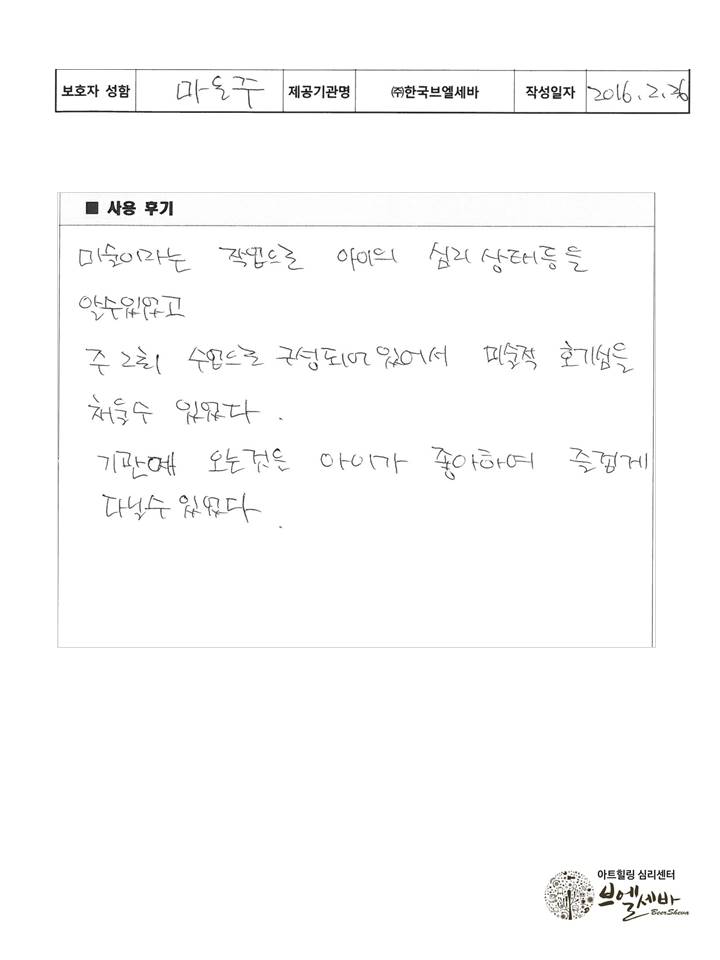 보호자 성함 마은주 제공기관명 ㈜한국브엘세바 작성일자 2016.2.26
■ 사용 후기
미술이라는 작업으로 아이의 심리 상태등을
알수있었고
주 2회 수업으로 구성되어 있어서 미술적 호기심을
채울수 있었다.
기관에 오는것은 아이가 좋아하여 즐겁게
다닐수 있었다.
아트힐링 심리센터
브엘세바
BeerSheva